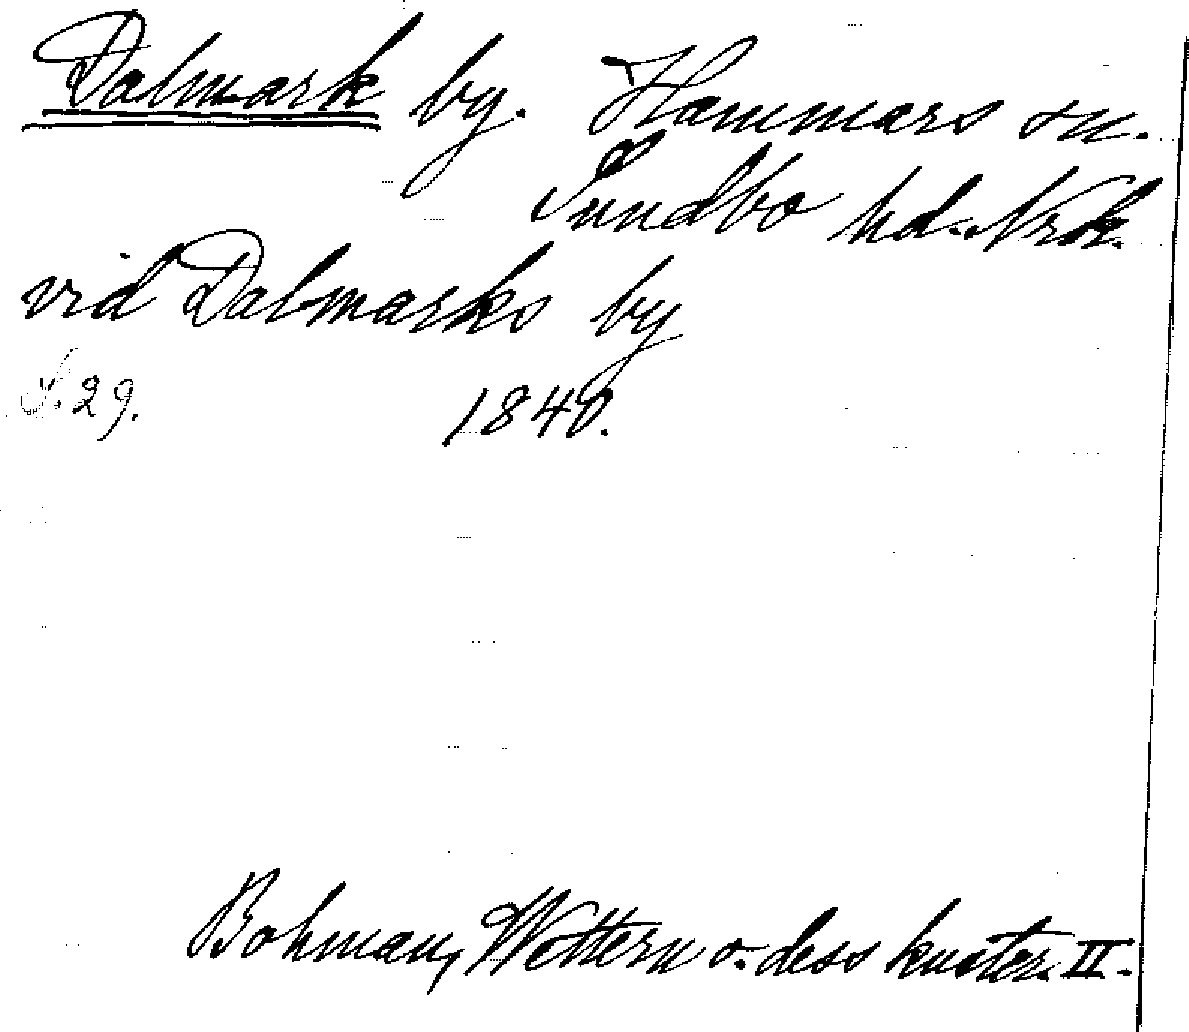 Dalmark by. Hammars sn.
Sundbo hd. Nrk.
vid Dalmarks by
S. 29. 1840.
Bohman, Wettern o. dess kuster. II.